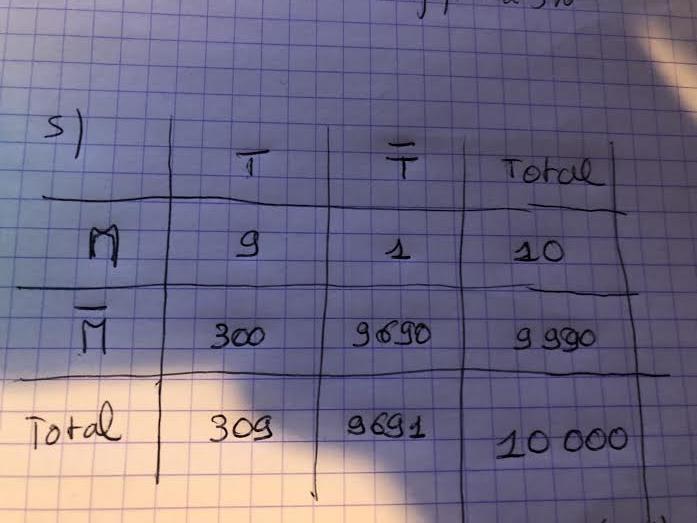 5)
T T̅ Total
M 9 1 10
M̅ 300 9690 9 990
Total 309 9691 10 000